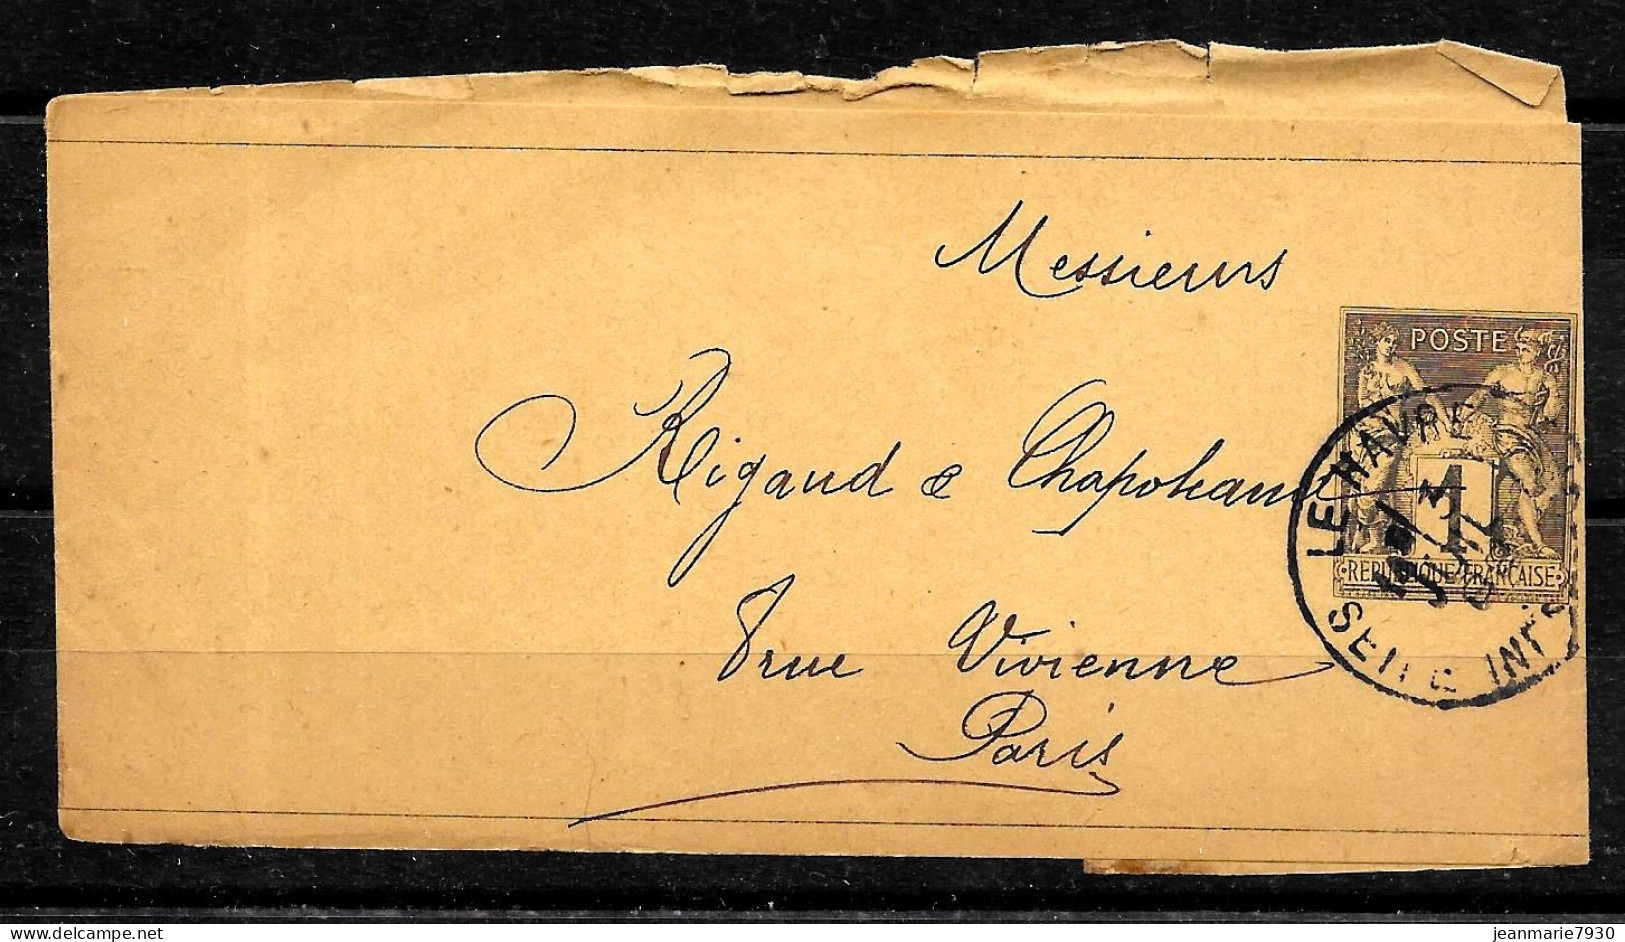 Messieurs
Rigaud & Chapoteaud
8 rue Vivienne
Paris
POSTE
1
REPUBLIQUE FRANÇAISE
LE HAVRE
3
SEINE INF
delcampe.net
jeanmarie7930